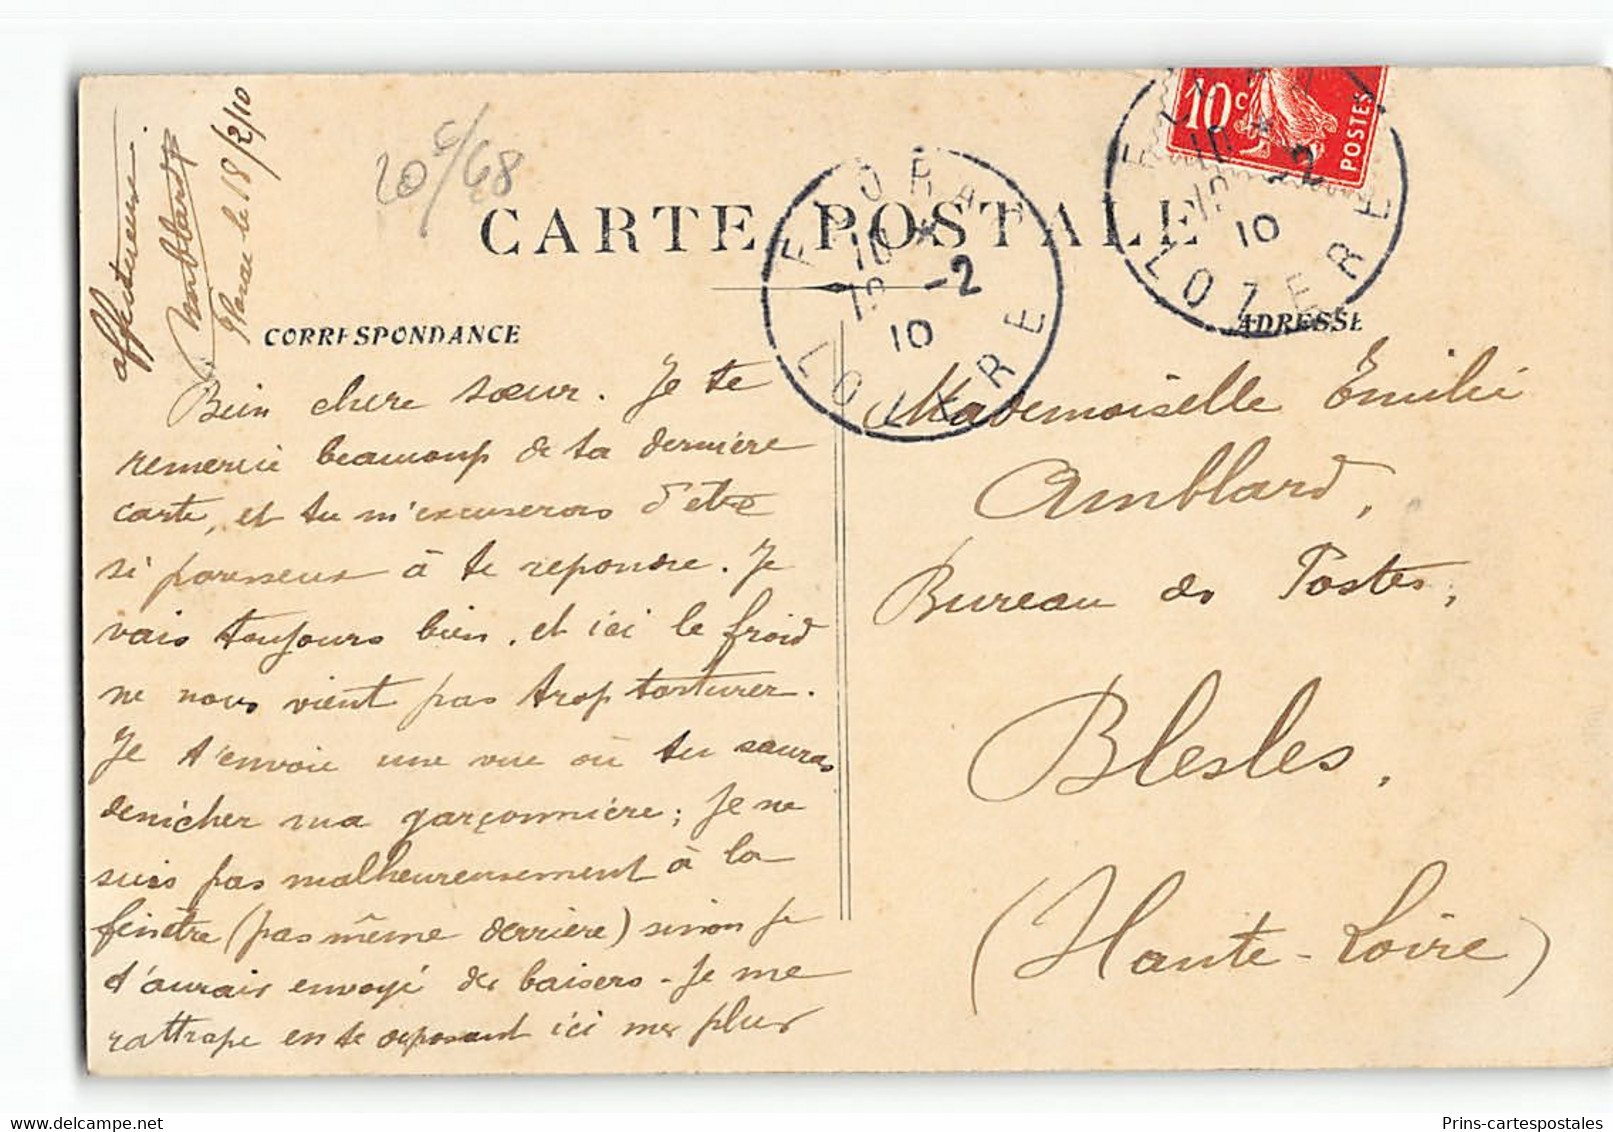 20 c/68
CARTE POSTALE
10c
POSTES
FLORAC
10 *
19 -2
10
LOZERE
10 *
19 -2
10
LOZERE
CORRESPONDANCE
ADRESSE
Bien chere sœur. Je te
remercie beaucoup de ta dernière
carte, et tu m'excuseras d'être
si paresseux à te repondre. Je
vais toujours bien, et ici le froid
ne nous vient pas trop torturer.
Je t'envoie une vue où tu sauras
denicher ma garçonnière; Je ne
suis pas malheureusement à la
fenêtre (pas même derrière) sinon je
t'aurais envoyé des baisers. Je me
rattrape en te deposant ici mes plus
affectueux.
Amblard
Florac le 18/2/10
Mademoiselle Emilie
Amblard,
Bureau des Postes,
Blesles,
(Haute-Loire)
delcampe.net
Prins-cartespostales